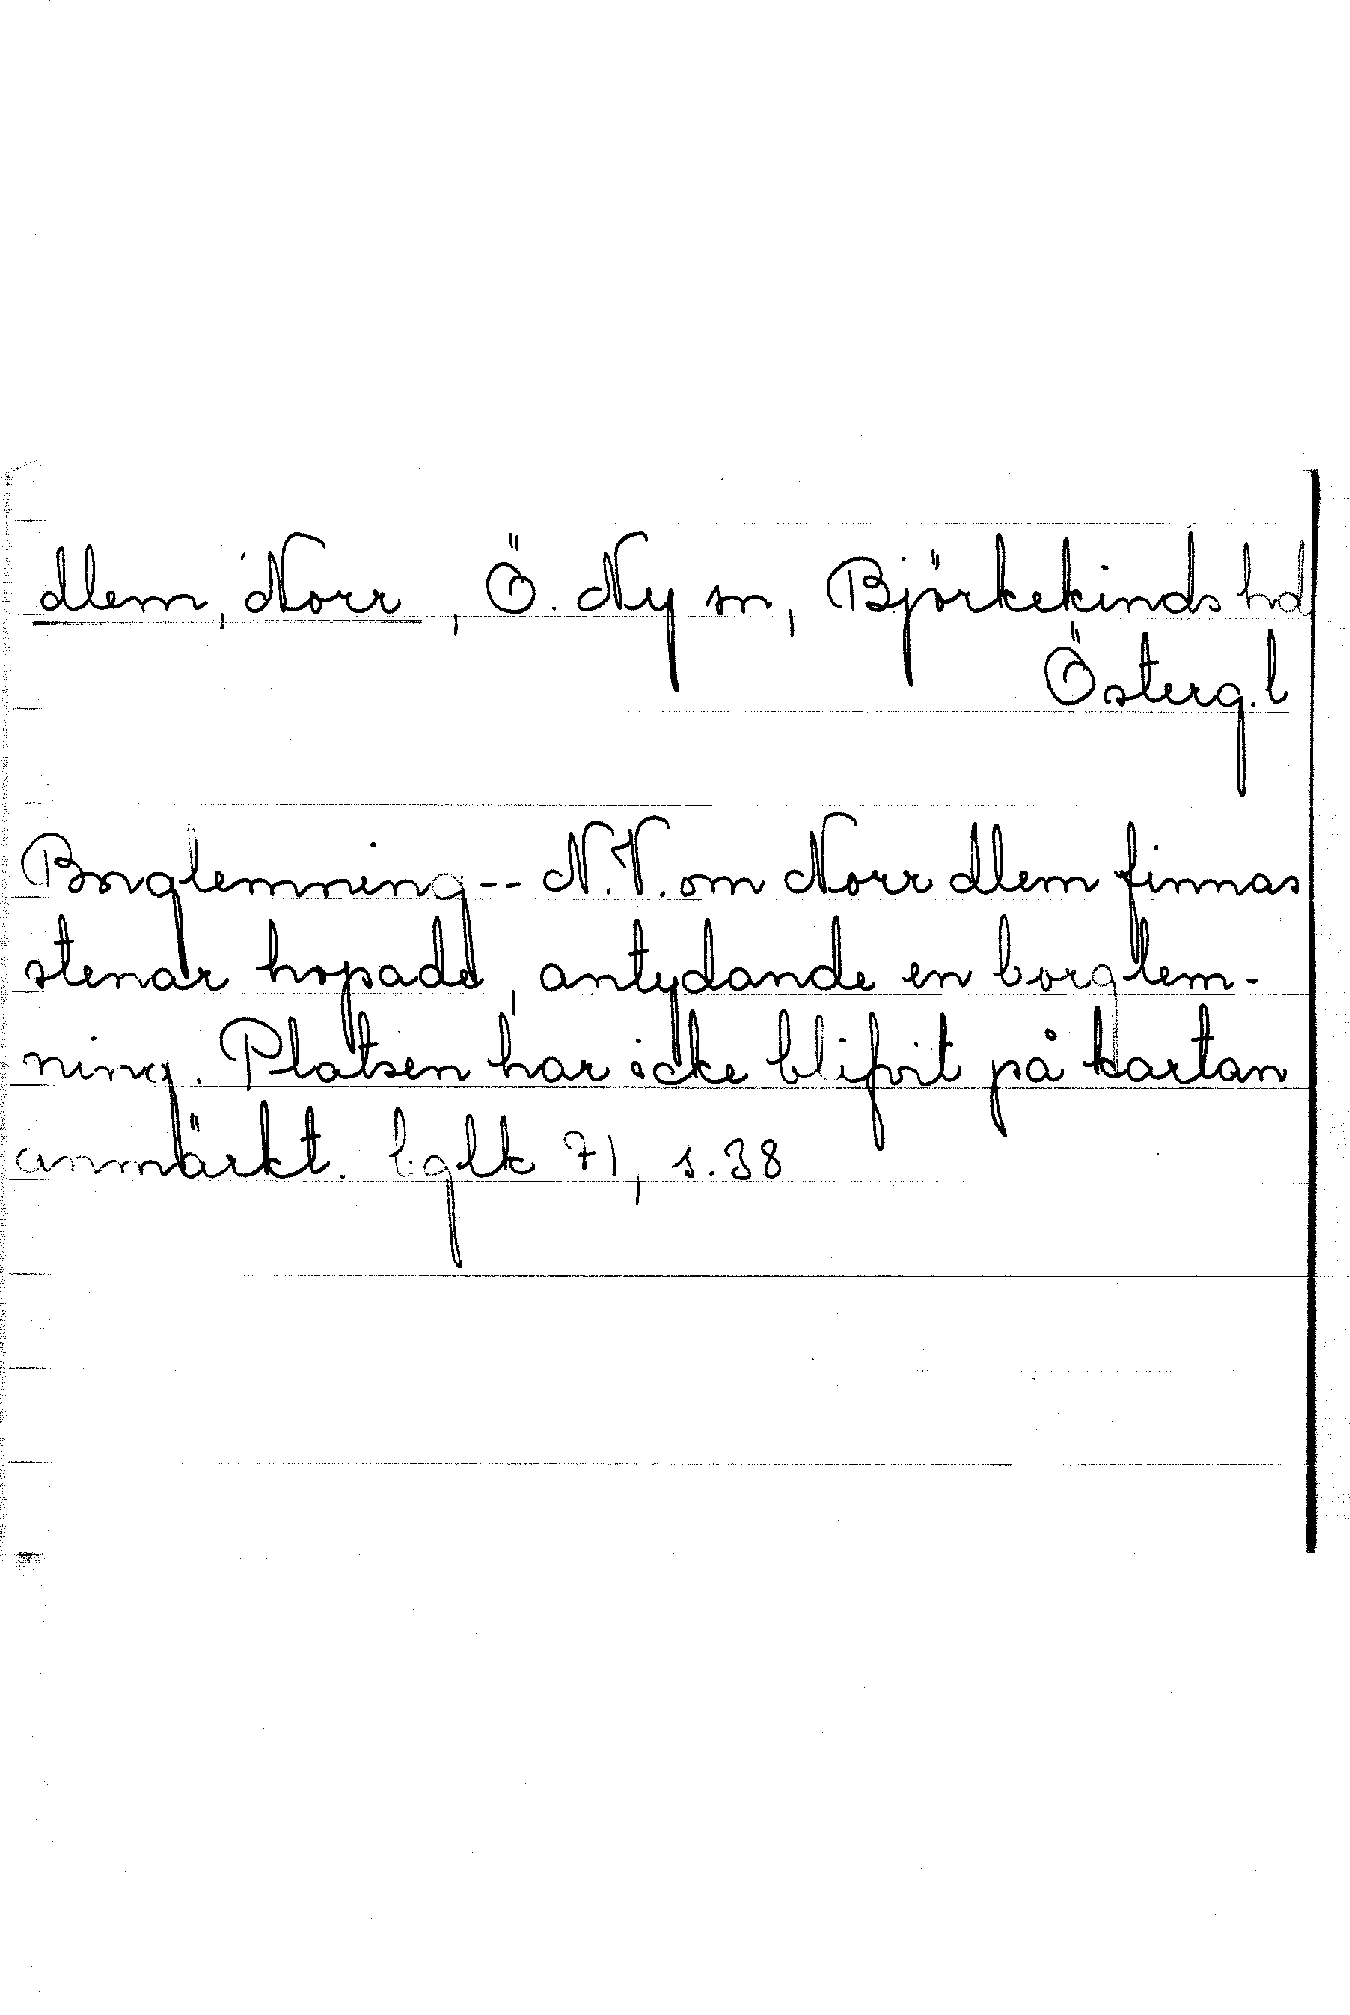 Alem, Norr, Ö. Ny sn, Björkekinds hd
Österg.l
Borglemning -- N.V. om Norr Alem finnas
stenar hopade, antydande en borglem-
ning. Platsen har icke blifvit på kartan
anmärkt. bglk 71, s.38